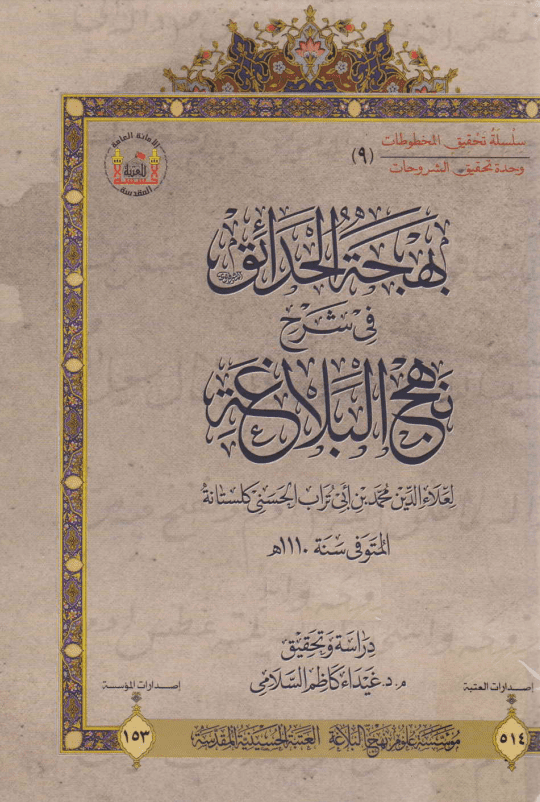 الأمانة العامة
للعتبة
المقدسة
سلسلة تحقيق المخطوطات
(٩)
وحدة تحقيق الشروحات
بهجة الحدائق
في شرح
نهج البلاغة
لعلاء الدين محمد بن أبي تراب الحسني كلستانة
المتوفى سنة ١١١٠هـ
دراسة وتحقيق
م. د. غيداء كاظم السلامي
إصدارات العتبة
إصدارات المؤسسة
٥١٤
مؤسسة علوم نهج البلاغة العتبة الحسينية المقدسة
١٥٣